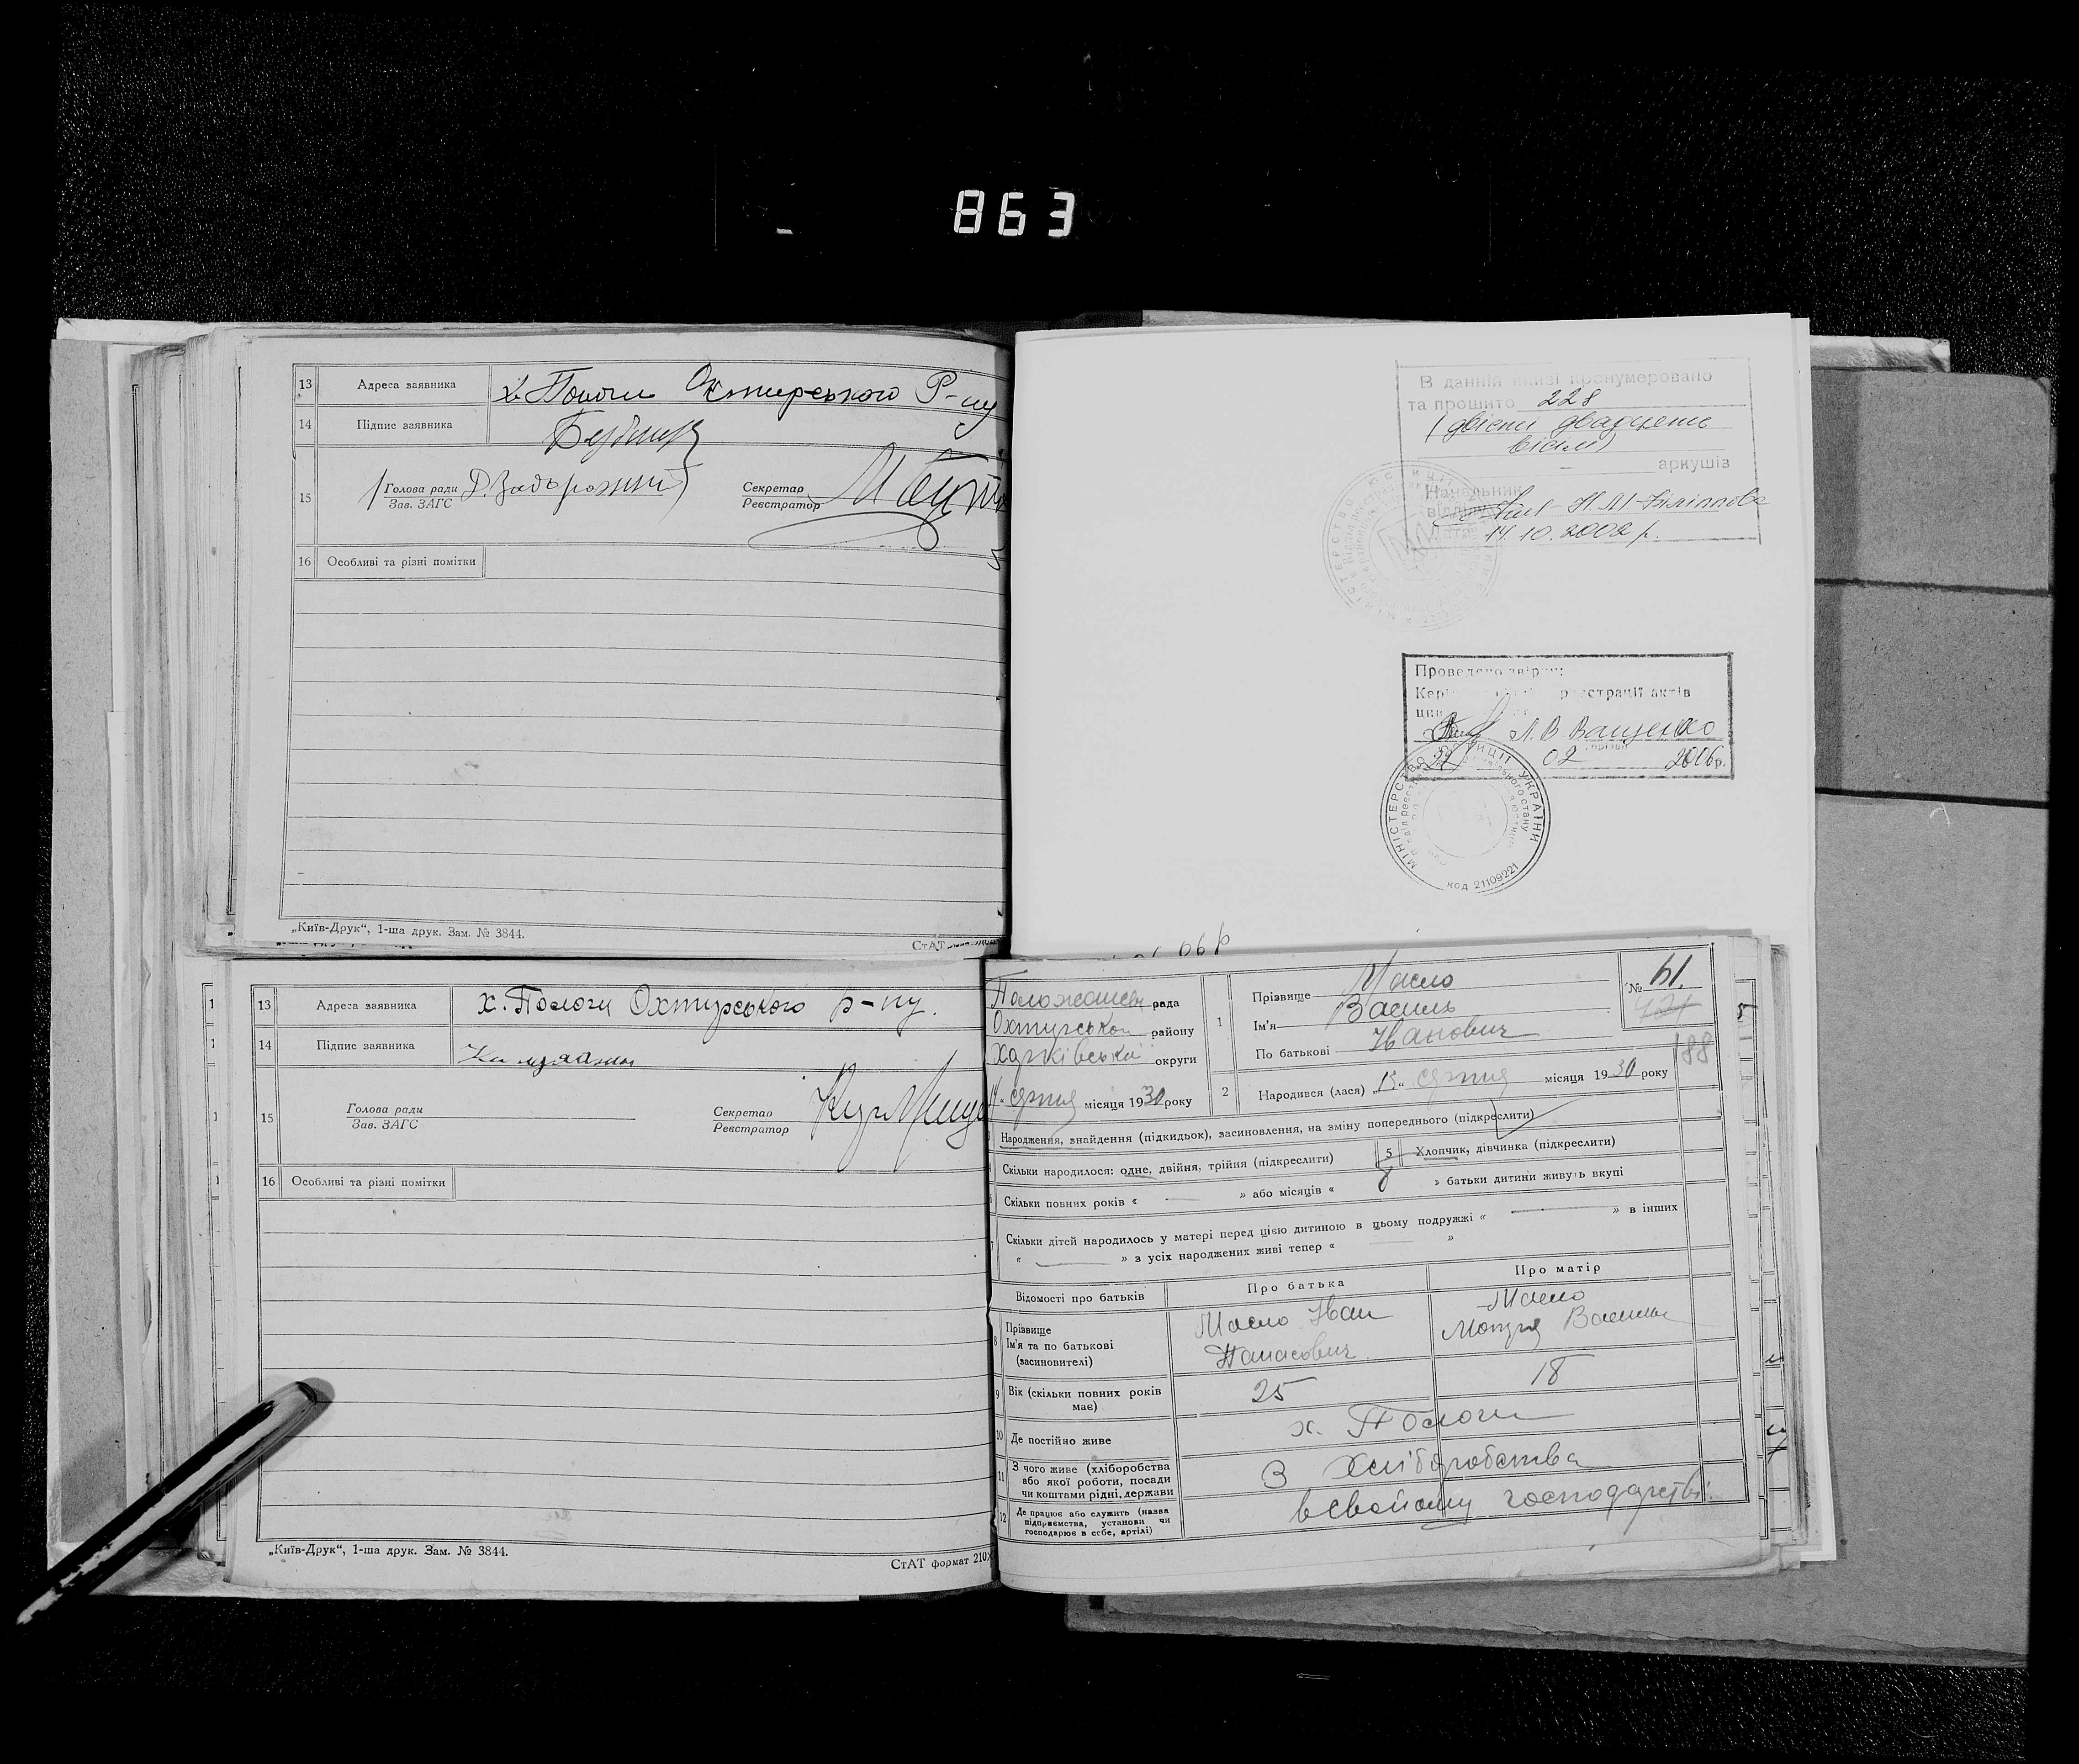 863
13 Адреса заявника х. Пологи Охтирського Р-ну
14 Підпис заявника
15 Голова ради Д. Задорожний Секретар
Зав. ЗАГС Реєстратор
16 Особливі та різні помітки
„Київ-Друк“, 1-ша друк. Зам. № 3844. СтАТ
В данній книзі пронумеровано
та прошито 228
(двісти двадцять
вісім)
аркушів
Начальник
відділу Н.М. Філіппова
14.10.2002 р.
Проведено звірку
реєстрації актів
Л.В. Ващенко
22 02 2006р.
МІНІСТЕРСТВО ЮСТИЦІЇ УКРАЇНИ
код 21109221
06 р
13 Адреса заявника х. Пологи Охтирського р-ну.
14 Підпис заявника
15 Голова ради Секретар
Зав. ЗАГС Реєстратор
16 Особливі та різні помітки
„Київ-Друк“, 1-ша друк. Зам. № 3844. СтАТ формат 210
рада
Охтирської району
Харківської округи
14 „ серпня місяця 1930 року
1 Прізвище Масло
Ім'я Василь
По батькові Иванович
№ 61.
188
2 Народився (лася) „13“ серпня місяця 1930 року
Народження, знайдення (підкидьок), засиновлення, на зміну попереднього (підкреслити)
Скільки народилося: одне, двійня, трійня (підкреслити) 5 Хлопчик, дівчинка (підкреслити)
Скільки повних років « — » або місяців « 8 » батьки дитини живуть вкупі
7 Скільки дітей народилось у матері перед цією дитиною в цьому подружжі « — » в інших
« — » з усіх народжених живі тепер « — »
Відомості про батьків Про батька Про матір
8 Прізвище
Ім'я та по батькові
(засиновителі)
Масло Иван
Панасович
Масло
Мотря
9 Вік (скільки повних років
має) 25 18
10 Де постійно живе х. Пологи
11 З чого живе (хліборобства
або якої роботи, посади
чи коштами рідні, держави
З Хліборобства
12 Де працює або служить (назва
підприємства, установи чи
господарює в себе, артілі)
в свойому господарстві.